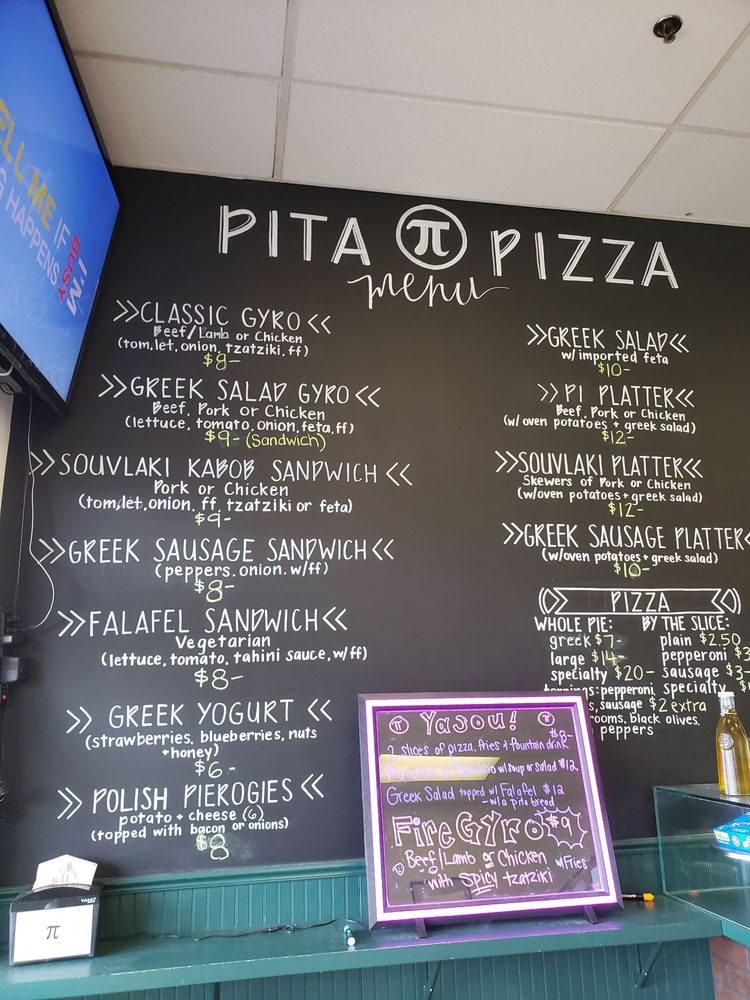 ELL ME IF
G HAPPENS.
I'M
BUSY
PITA π PIZZA
menu
>>CLASSIC GYRO<<
Beef/Lamb or Chicken
(tom,let,onion, tzatziki, ff)
$8-
>>GREEK SALAD GYRO<<
Beef, Pork or Chicken
(lettuce, tomato, onion, feta, ff)
$9-(Sandwich)
>>SOUVLAKI KABOB SANDWICH<<
Pork or Chicken
(tom,let,onion, ff, tzatziki or feta)
$9-
>>GREEK SAUSAGE SANDWICH<<
(peppers, onion, w/ff)
$8-
>>FALAFEL SANDWICH<<
Vegetarian
(lettuce, tomato, tahini sauce, w/ff)
$8-
>> GREEK YOGURT <<
(strawberries, blueberries, nuts
+honey)
$6-
>> POLISH PIEROGIES <<
potato + cheese (6)
(topped with bacon or onions)
$8
>>GREEK SALAD<<
w/imported feta
$10-
>>PI PLATTER<<
Beef, Pork or Chicken
(w/ oven potatoes + greek salad)
$12-
>>SOUVLAKI PLATTER<<
Skewers of Pork or Chicken
(w/oven potatoes + greek salad)
$12-
>>GREEK SAUSAGE PLATTER<
(w/oven potatoes + greek salad)
$10-
PIZZA
WHOLE PIE:
greek $7-
large $14-
specialty $20-
toppings: pepperoni,
s, sausage $2 extra
ooms, black olives,
peppers
BY THE SLICE:
plain $2.50
pepperoni $3
sausage $3-
specialty
π Yasou! π
$8-
2 slices of pizza, fries & fountain drink
w/ soup or salad $12
Greek Salad topped w/ Falafel $12
-w/a pita bread
Fire Gyro $9
Beef/Lamb or Chicken w/Fries
with Spicy tzatziki
π